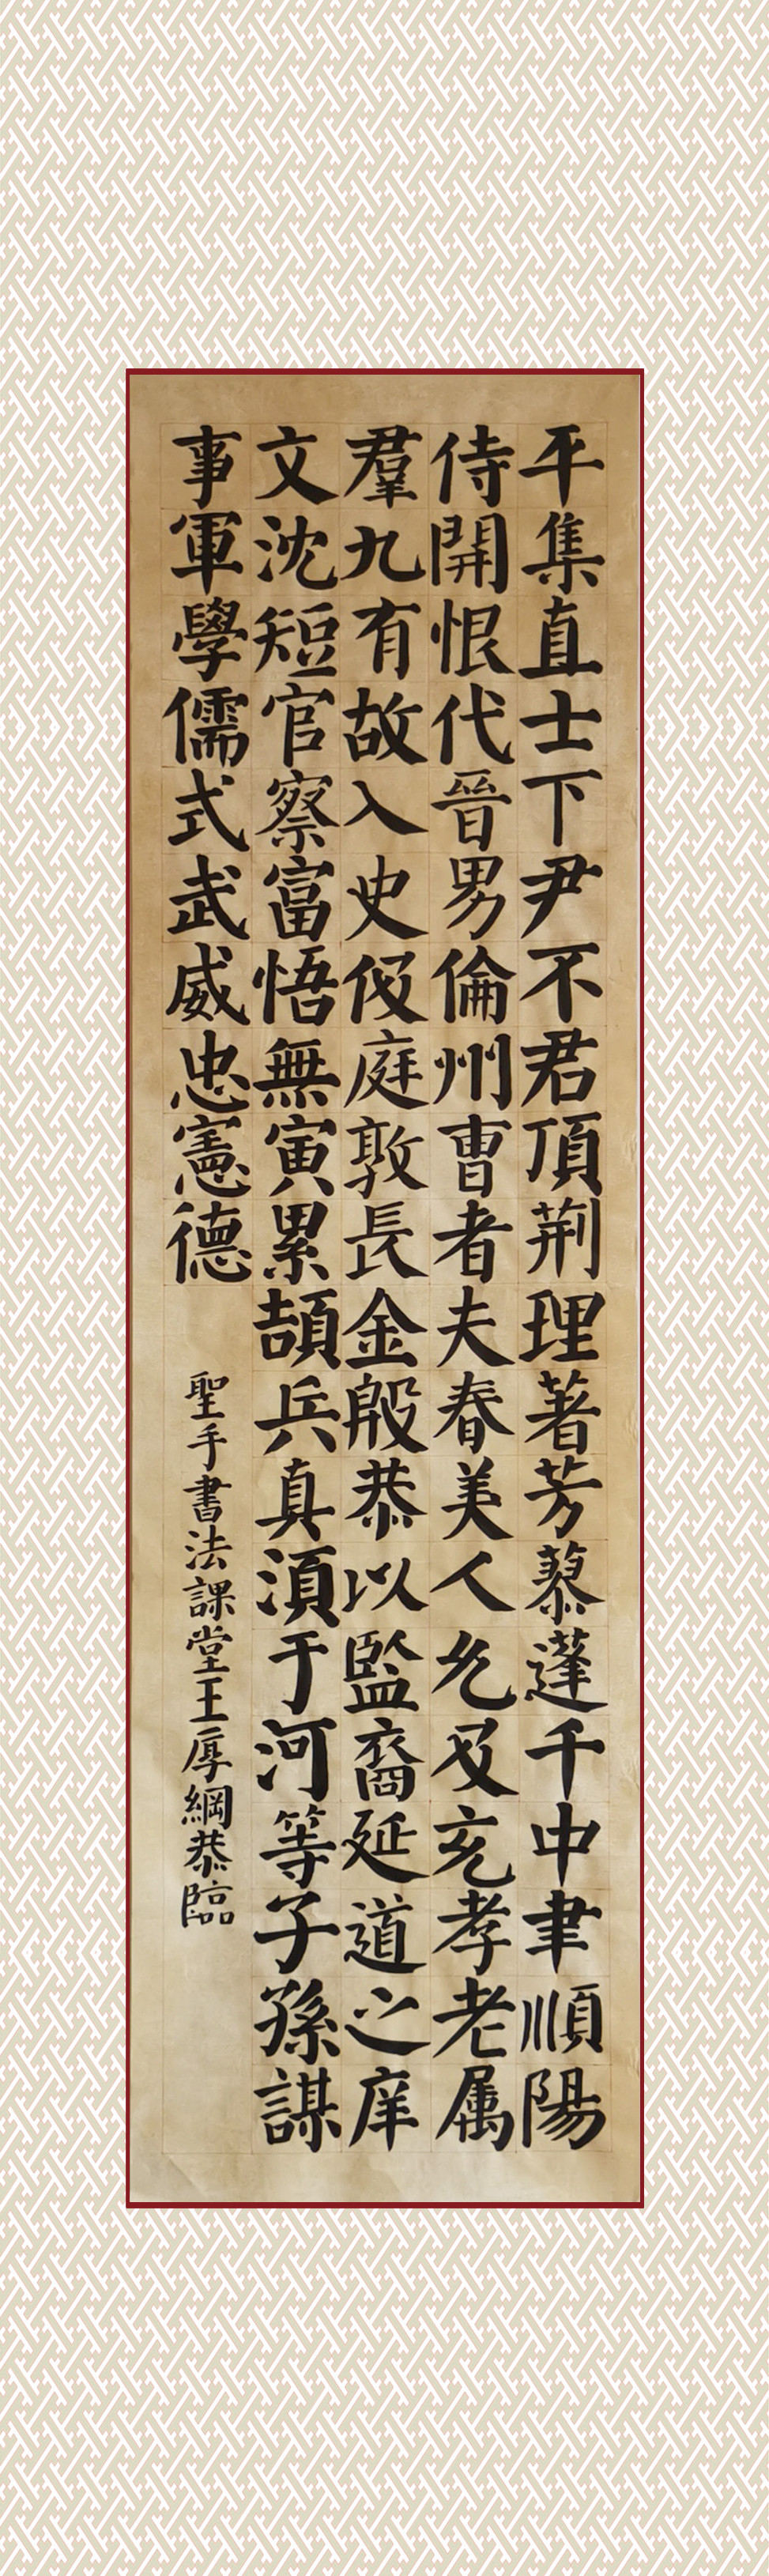 平集直士下尹不君頂荆理著芳蔡蓬千中聿順陽
侍開恨代晉男倫州曺者夫春美人允及充孝老属
羣九有故入史伇庭敦長金殷恭以監裔延道之庠
文沈短官察富悟無寅累頡兵真湏于河等子孫謀
事軍學儒式武威忠憲德
聖手書法課堂王厚綱恭臨